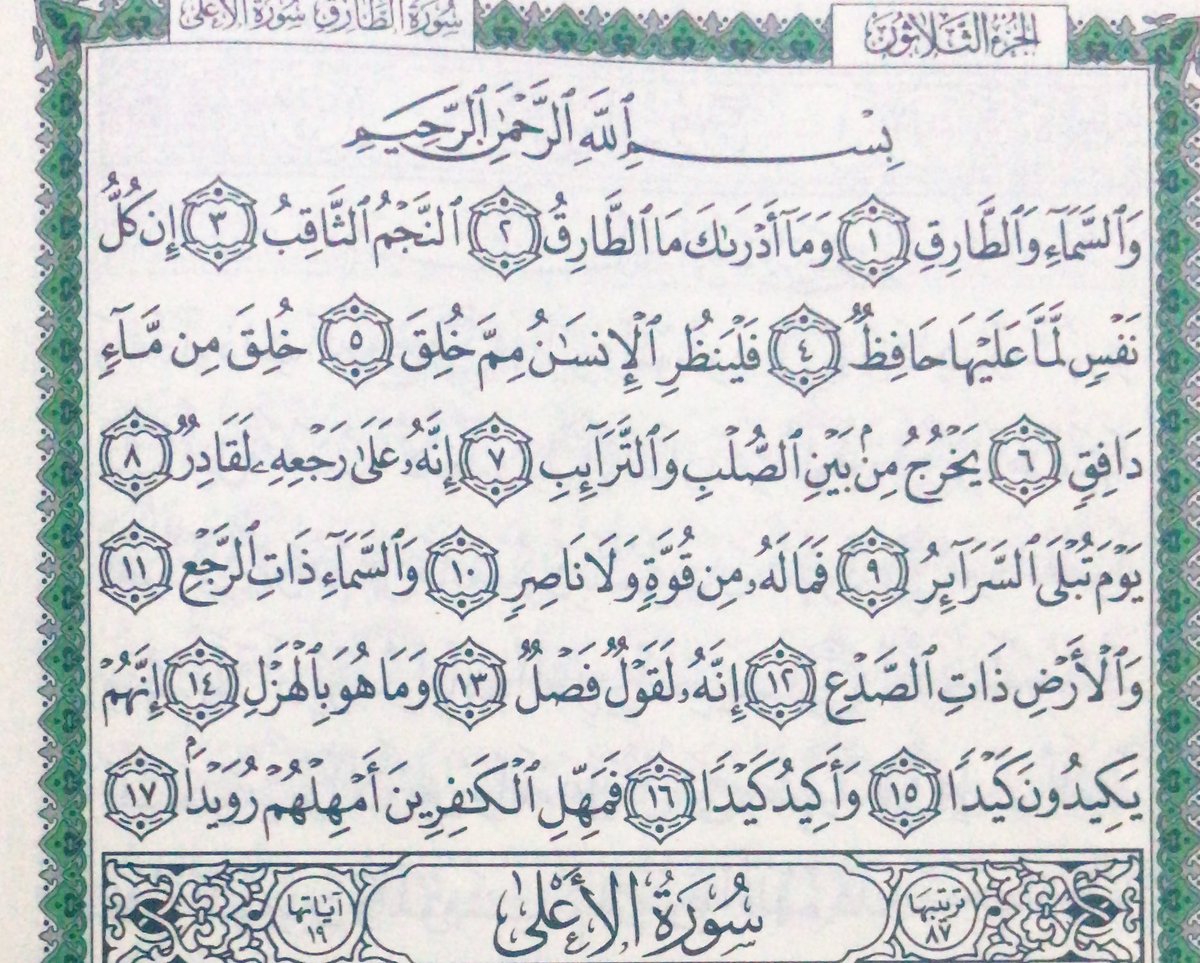 الجزء الثلاثون
سورة الطارق سورة الأعلى
بِسْمِ ٱللَّهِ ٱلرَّحْمَٰنِ ٱلرَّحِيمِ
وَٱلسَّمَآءِ وَٱلطَّارِقِ ١ وَمَآ أَدْرَىٰكَ مَا ٱلطَّارِقُ ٢ ٱلنَّجْمُ ٱلثَّاقِبُ ٣ إِن كُلُّ
نَفْسٍ لَّمَّا عَلَيْهَا حَافِظٌ ٤ فَلْيَنظُرِ ٱلْإِنسَٰنُ مِمَّ خُلِقَ ٥ خُلِقَ مِن مَّآءٍ
دَافِقٍ ٦ يَخْرُجُ مِنۢ بَيْنِ ٱلصُّلْبِ وَٱلتَّرَآئِبِ ٧ إِنَّهُۥ عَلَىٰ رَجْعِهِۦ لَقَادِرٌ ٨
يَوْمَ تُبْلَى ٱلسَّرَآئِرُ ٩ فَمَا لَهُۥ مِن قُوَّةٍ وَلَا نَاصِرٍ ١٠ وَٱلسَّمَآءِ ذَاتِ ٱلرَّجْعِ ١١
وَٱلْأَرْضِ ذَاتِ ٱلصَّدْعِ ١٢ إِنَّهُۥ لَقَوْلٌ فَصْلٌ ١٣ وَمَا هُوَ بِٱلْهَزْلِ ١٤ إِنَّهُمْ
يَكِيدُونَ كَيْدًا ١٥ وَأَكِيدُ كَيْدًا ١٦ فَمَهِّلِ ٱلْكَٰفِرِينَ أَمْهِلْهُمْ رُوَيْدًۢا ١٧
ترتيبها ٨٧ سُورَةُ الأَعْلَىٰ آياتها ١٩